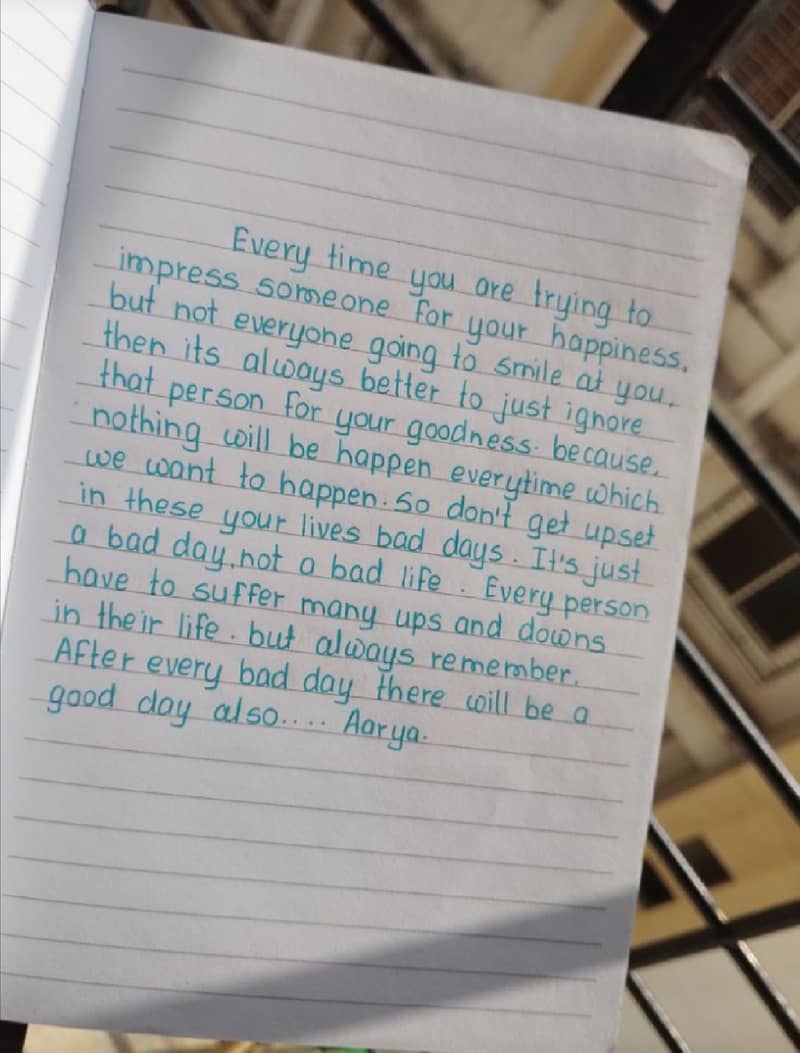 Every time you are trying to
impress someone for your happiness.
but not everyone going to smile at you.
then its always better to just ignore
that person for your goodness. because.
nothing will be happen everytime which
we want to happen. So don't get upset
in these your lives bad days. It's just
a bad day, not a bad life. Every person
have to suffer many ups and downs
in their life. but always remember.
After every bad day there will be a
good day also.... Aarya.